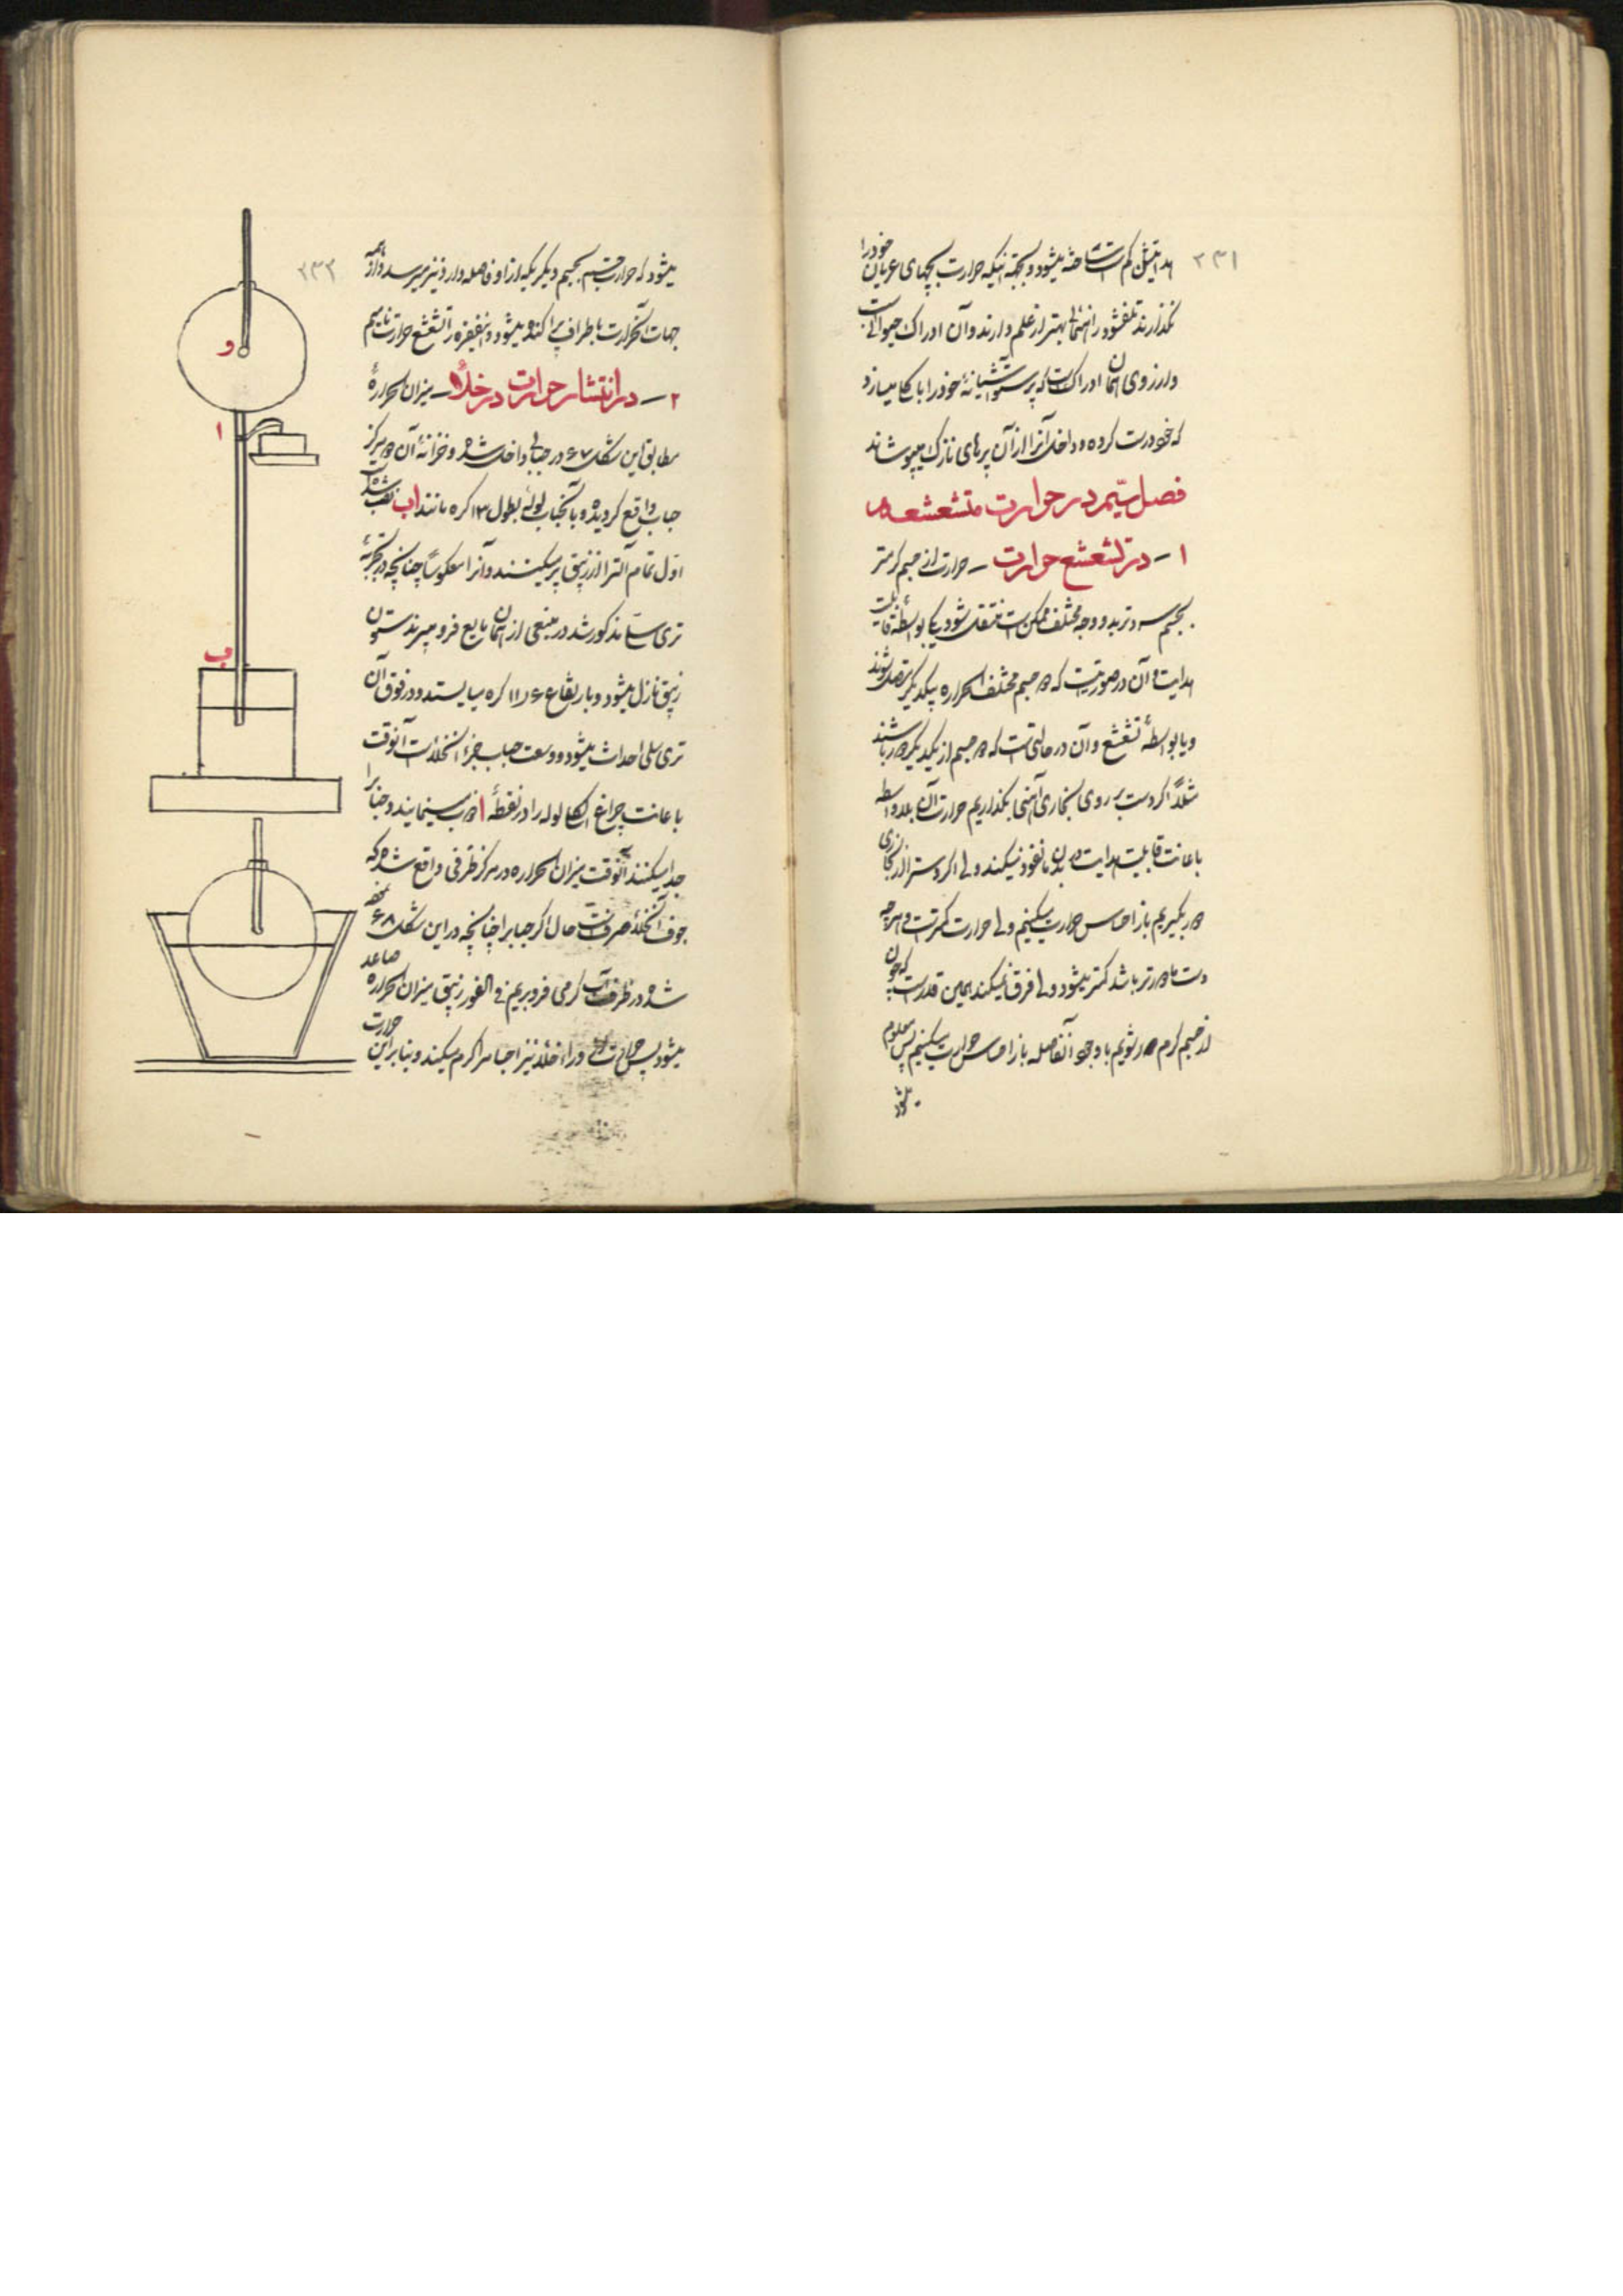 ۲۳۱
هدایتش کم است ساخته میشود و بجهة اینکه حرارت بچهای عریان خود را
نگذارند تلف شود راهنمائی بهتر از علم دارند و آن ادراک حیوانی است
و از روی همان ادراک است که پرستو آشیانهٔ خود را با کاه میسازد
که خود درست کرده و داخل آنرا از آن پرهای نازک میپوشاند
فصل سیّم در حرارت متشعشعه
۱ – در تشعشع حرارت – حرارت از جسم گرمتر
بجسم سردتر بدو وجه مختلف ممکن است منتقل شود یکی بواسطهٔ قابلیت
هدایت و آن در صورتیست که دو جسم مختلف الحراره بیکدیگر متصل شوند
و یا بواسطهٔ تشعشع و آن در حالتی است که دو جسم از یکدیگر دور باشند
مثلاً اگر دست بر روی بخاری آهنی بگذاریم حرارت آن بلاواسطه
باعانت قابلیت هدایت در بدن ما نفوذ میکند ولی اگر دست را از بخاری
دور بگیریم باز احساس حرارت میکنیم ولی حرارت کمتر است و هرچه
دست ما دورتر باشد کمتر میشود ولی فرق نمیکند همین قدر است که چون
از جسم گرم دور شویم با وجود آنفاصله باز احساس حرارت میکنیم پس معلوم
میشود
۲۳۲
میشود که حرارت جسم بجسم دیگر که از او فاصله دارد نیز میرسد و از همه
جهات آنحرارت باطراف پراکنده میشود و اینفقره را تشعشع حرارت نامیم
۲ – در انتشار حرارت در خلأ – میزان الحرارهٔ
مطابق این شکل ۶۷ در حبابی داخل شده و خزانهٔ آن در مرکز
حباب واقع گردیده و بآنحباب لولهٔ بطول ۱۳ گره مانند اب نصب شده است
اوّل تمام آلترا از زیبق پر میکنند و آنرا معکوساً چنانچه در تجربهٔ
تری سلّی مذکور شد در منبعی از همان مایع فرو میبرند ستون
زیبق نازل میشود و بارتفاع ۱۱٫۶۶ گره میایستد و در فوق آن
تری سلی احداث میشود و وسعت حباب جزء آنخلأ است آنوقت
باعانت چراغ الکل لوله را در نقطهٔ ا ذوب مینمایند و حباب را
جدا میکنند آنوقت میزان الحراره در مرکز ظرفی واقع شده که
جوف آن خلأ صرف است حال اگر حباب را چنانچه در این شکل ۶۸ نموده
شده در ظرف آب گرمی فرو بریم فی الفور زیبق میزان الحراره صاعد
میشود پس حرارت در خلأ نیز اجسام را گرم میکند و بنابراین حرارت
و
ا
ب